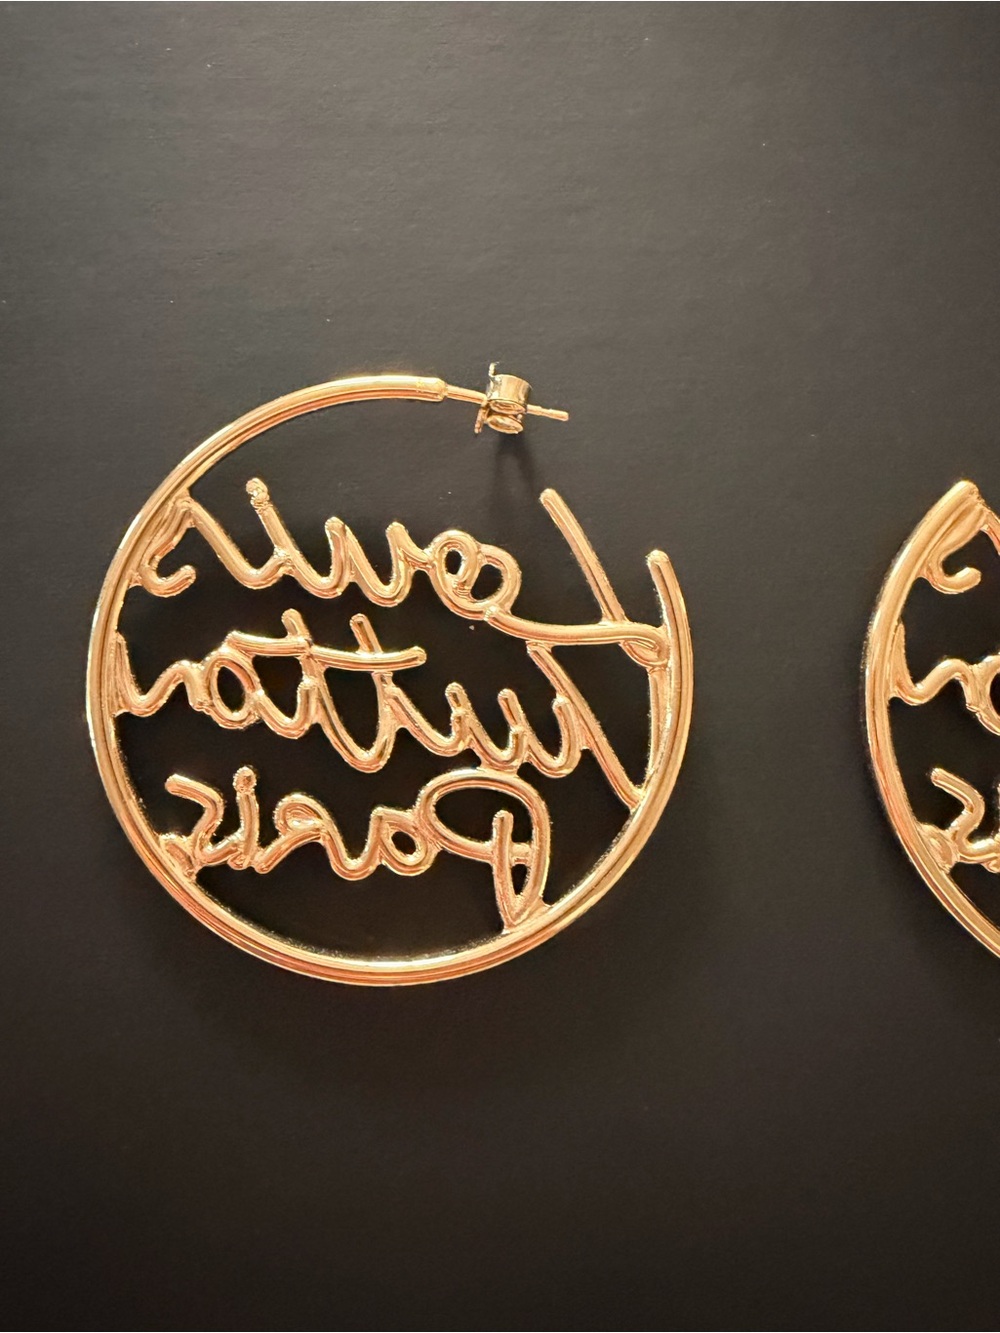 Louis
Vuitton
Paris